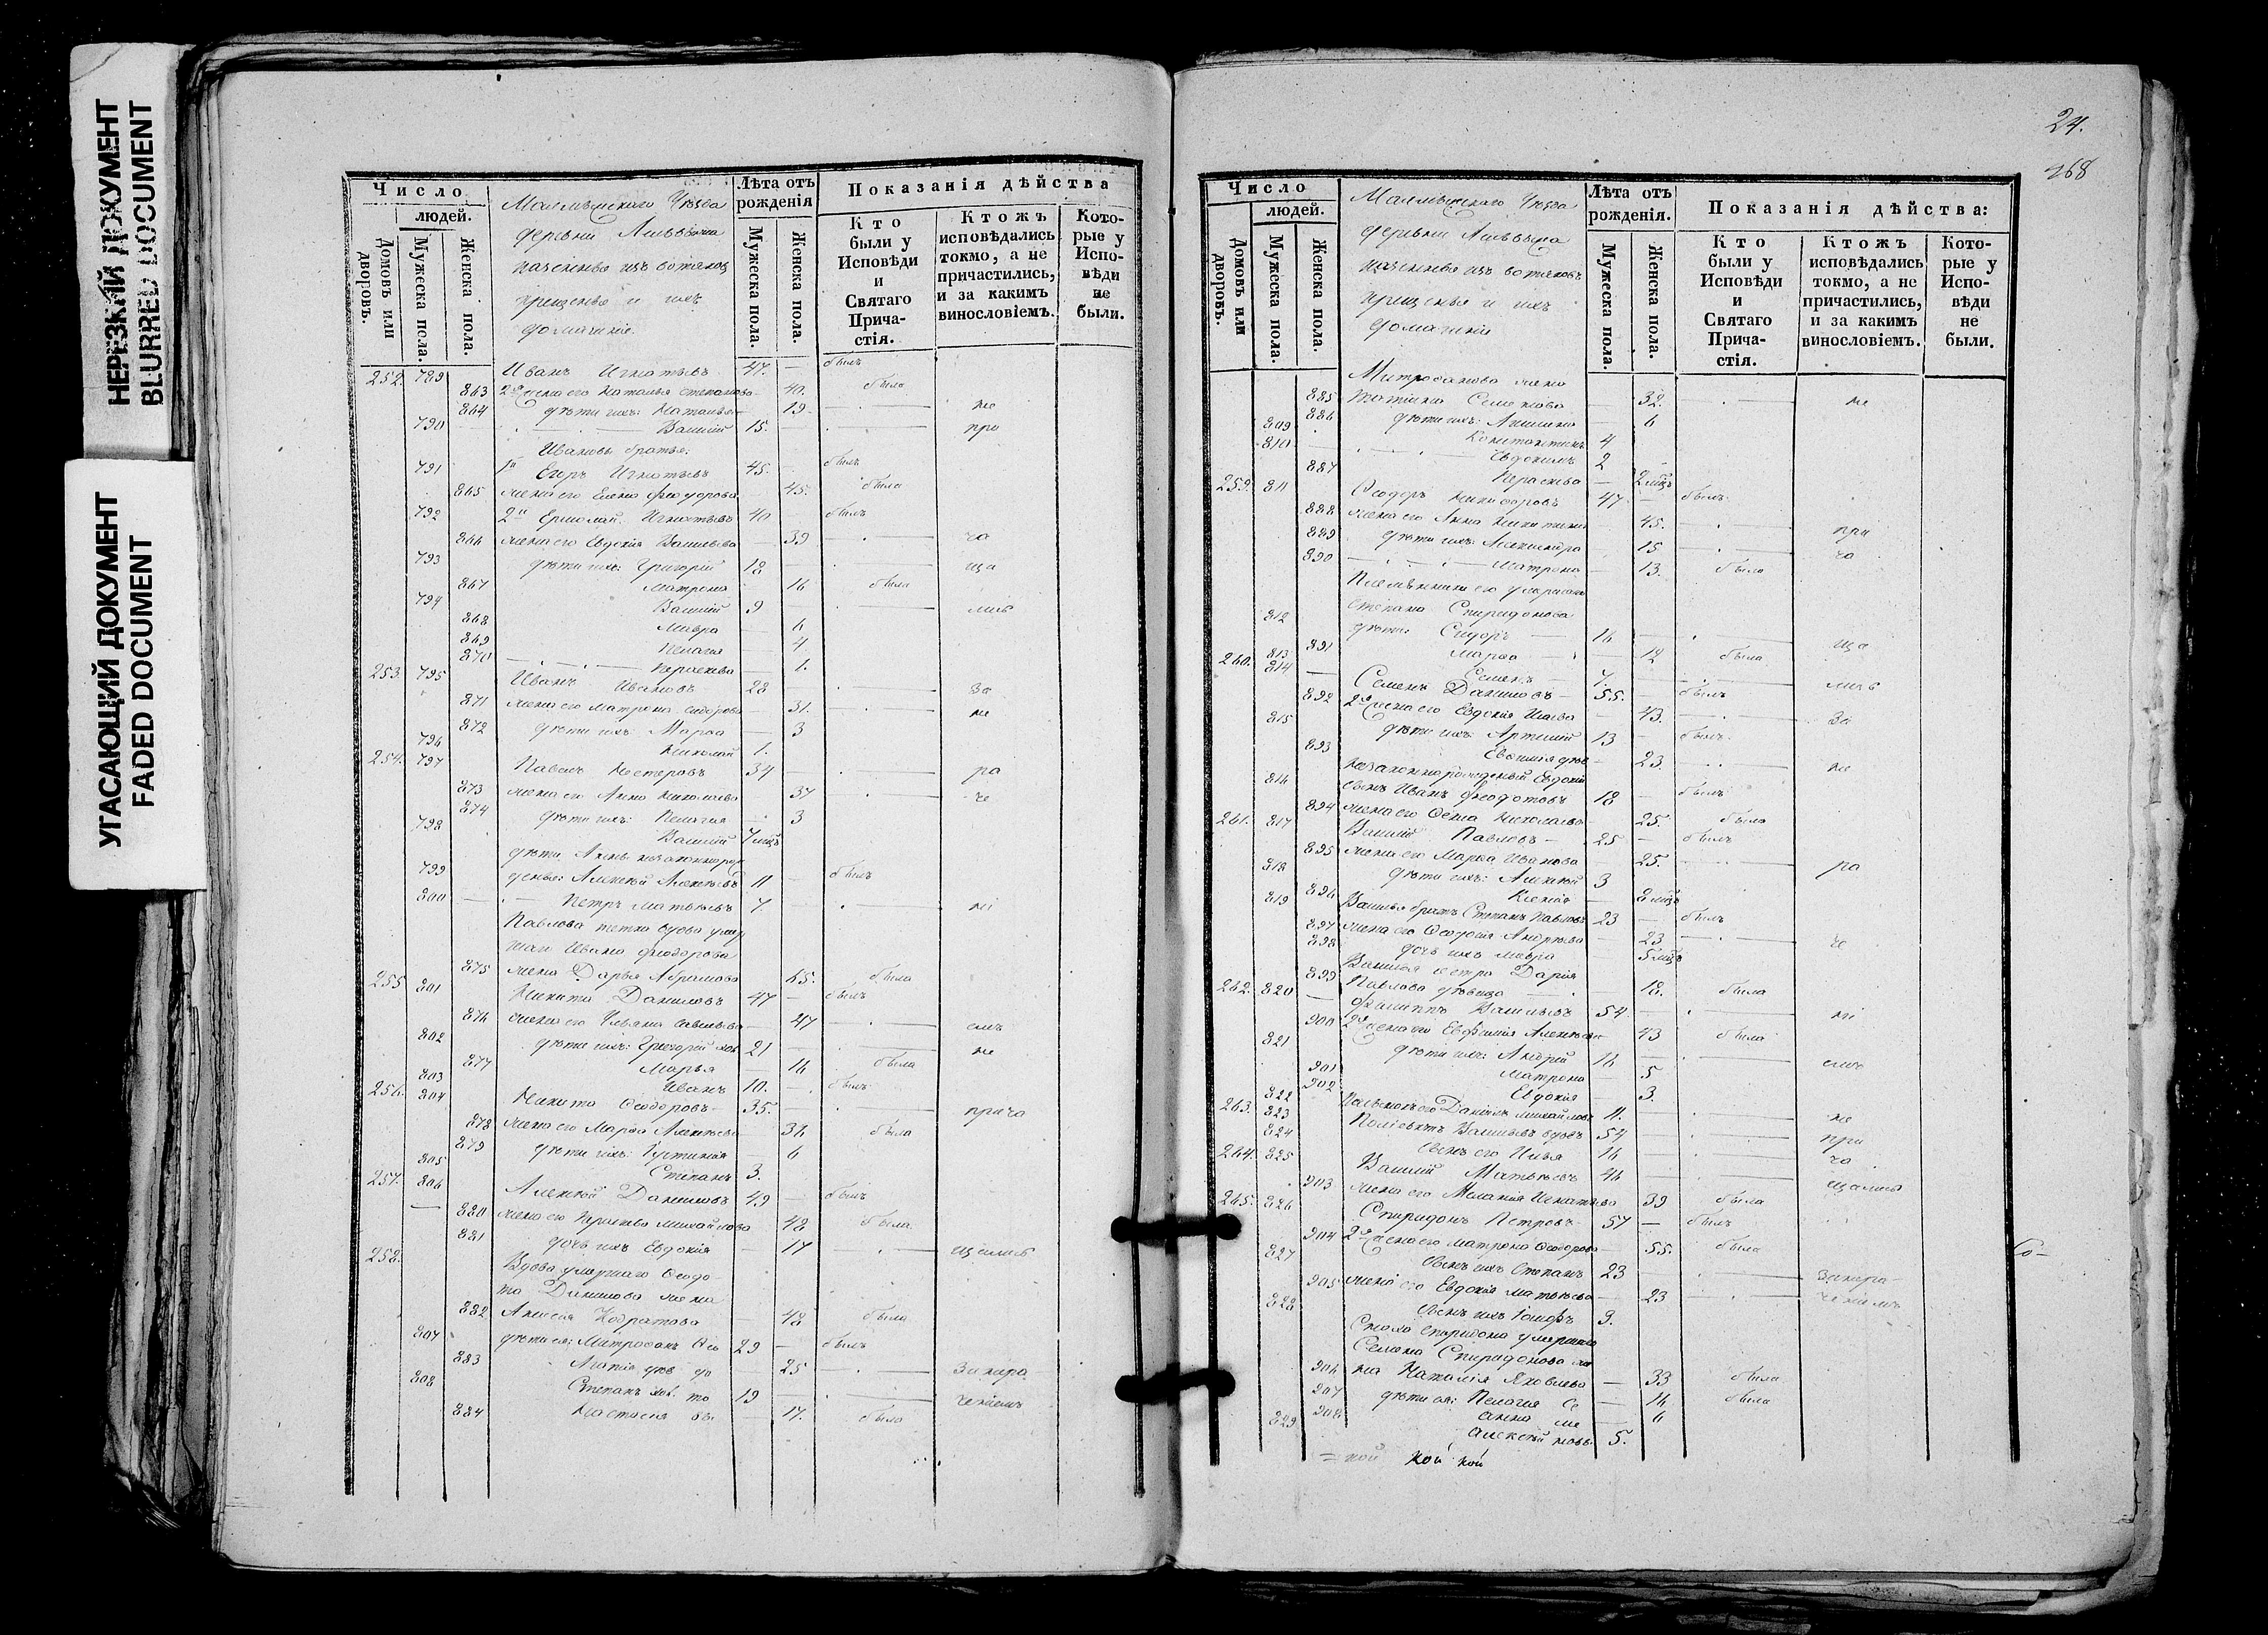 НЕРЕЗКИЙ ДОКУМЕНТ
BLURRED DOCUMENT
УГАСАЮЩИЙ ДОКУМЕНТ
FADED DOCUMENT
Число
людей.
Домовъ или дворовъ.
Мужеска пола.
Женска пола.
Малмыжскаго Уѣзда
деревни
казенныя изъ вотяковъ
крещеныя и ихъ
домашніе.
Лѣта отъ рожденія
Мужеска пола.
Женска пола.
Показанія дѣйства
Кто были у Исповѣди и Святаго Прича-стія.
Ктожъ исповѣдались токмо, а не причастились, и за какимъ винословіемъ.
Кото-рые у Испо-вѣди не были.
252. 789 Иванъ Игнатьевъ 47. — былъ
863 2я жена его Наталья Степанова — 40. была
864 дѣти ихъ: Наталья — 19 — не
790 Василій 15. — про
Ивановы братья:
791 1й Егоръ Игнатьевъ 45. былъ
865 жена его Елена Феодорова — 45. была
792 2й Ермолай Игнатьевъ 40 — былъ
866 жена его Евдокія Васильева — 39 — ча
793 дѣти ихъ: Григорій 18 — ща
867 Матрона 16 была
794 Василій 9 — лись
868 Мавра — 6
869 Пелагія — 4
870 Параскева — 1.
253. 795 Иванъ Ивановъ 28 — за
871 жена его Матрона — 31. — не
872 дѣти ихъ: Марѳа — 3
796 Николай 1.
254. 797 Павелъ Нестеровъ 34 — ра
873 жена его Анна Николаева 37 — че
874 дѣти ихъ: Пелагія — 3
798 Василій 7 мцъ
дѣти
799 Алексѣй Алексѣевъ 11 — былъ
800 Петръ Матвѣевъ 7. — ні
Павлова тетка вдова умер
шаго Ивана Феодорова
875 жена Дарья Абрамова 65. была
255. 801 Никита Даниловъ 47 — былъ
876 жена его Ульяна Савельева — 47 — емъ
802 дѣти ихъ: Григорій хол 21 — не
877 Марья — 16 была
803 Иванъ 10. — былъ
256. 804 Никита Ѳеодоровъ 35. — прича
878 жена его Марѳа Алексѣева 36 была
879 дѣти ихъ: Іустинія — 6
805 Степанъ 3.
257. 806 Алексѣй Даниловъ 49 — былъ
880 жена его Параскева Михайлова 48 была.
881 дочь ихъ Евдокія — 17 — щались
258. Вдова умершаго Ѳедо-
та Данилова жена
882 Анисья Кодратова — 48 была
807 дѣти ея: Митрофанъ Ѳео 29 — былъ
883 дѣв до — 25 — за нера
808 Степанъ хол. то 19 — ченіемъ
884 Настасья вы — 17. была
24.
268
Число
людей.
Домовъ или дворовъ.
Мужеска пола.
Женска пола.
Малмыжскаго Уѣзда
деревни
казенныя изъ вотяковъ
крещеныя и ихъ
домашніе
Лѣта отъ рожденія.
Мужеска пола.
Женска пола.
Показанія дѣйства:
Кто были у Исповѣди и Святаго Прича-стія.
Ктожъ исповѣдались токмо, а не причастились, и за какимъ винословіемъ.
Кото-рые у Испо-вѣди не были.
Митрофанова жена
885 Татіана Семенова — 32. — не
886 дѣти ихъ: — 6
809 Константинъ 4
810 Евдокимъ 2
887 Параскева — 2 мцъ
259. 811 Ѳеодоръ Никифоровъ 47 — былъ.
888 жена его Анна Никитина 45. — при
889 дѣти ихъ: Александра 15 — ча
890 Матрона — 13. была
Племянники его умершаго
Степана Спиридонова
812 дѣти: Сидоръ 16 — ща
891 Марѳа — 12 была
813 Семенъ 7. лись
260. 814 Семенъ Даниловъ — 55. былъ
892 2я жена его Евдокія Исаева — 43. — за
815 дѣти ихъ: Артемій 13 — былъ
893 Евгенія дѣв — 23. — не
незаконнорожденный Евдокіи
816 сынъ Иванъ Феодотовъ 18 — былъ
894 жена его Ѳекла Николаева 25. была
261. 817 Василій Павловъ — 25 — былъ
895 жена его Марѳа Иванова — 25. — ра
818 дѣти ихъ: Алексѣй 3
896 Ксенія — 8 мцъ
819 Васильевъ братъ Степанъ Павловъ 23 — былъ
897 жена его Ѳеодосія Андреева 23 — че
898 дочь ихъ Мавра — 5 мцъ
Васильева сестра Дарія
899 Павлова дѣвица 18. была
262. 820 Филиппъ Васильевъ 54 — ні
900 2я жена его Евфимія Алексѣева 43 была
821 дѣти ихъ: Андрей 16 — емъ
901 Матрона — 5
902 Евдокія — 3.
822 его Даніилъ Михайловъ 11. — не
263. 823 Поліевктъ Васильевъ вдовъ 54 — при
824 сынъ его Илья 16 — ча
264. 825 Василій Матвѣевъ 46 — щались
903 жена его Меланія Игнатьева 39 была
265. 826 Спиридонъ Петровъ 57 — былъ
904 2я жена его Матрона Ѳеодорова 55. была
827 сынъ ихъ Степанъ 23 — за нера-
905 жена его Евдокія Матвѣева — 23 — ченіемъ
828 сынъ ихъ Іосифъ 3.
Сноха Спиридона умершаго
Семена Спиридонова же
906 на Наталія Яковлева — 33 была
907 дѣти ея: Пелагія Се — 16 была
908 Анна ме — 6
829 Алексѣй новъ 5.
Со-
= кой кой кой